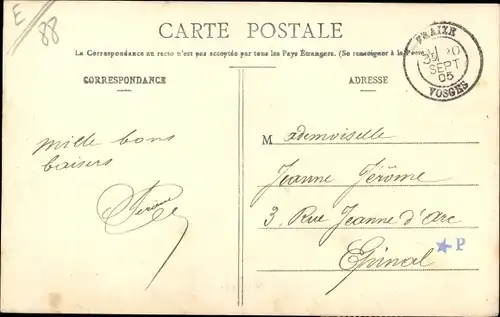 E
88
CARTE POSTALE
La Correspondance au recto n'est pas acceptée par tous les Pays Étrangers. (Se renseigner à la Poste)
FRAIZE
SEPT
05
VOSGES
CORRESPONDANCE
ADRESSE
Mille bons
baisers
Mademoiselle
Jeanne Jérôme
3, Rue Jeanne d'Arc
Epinal
P